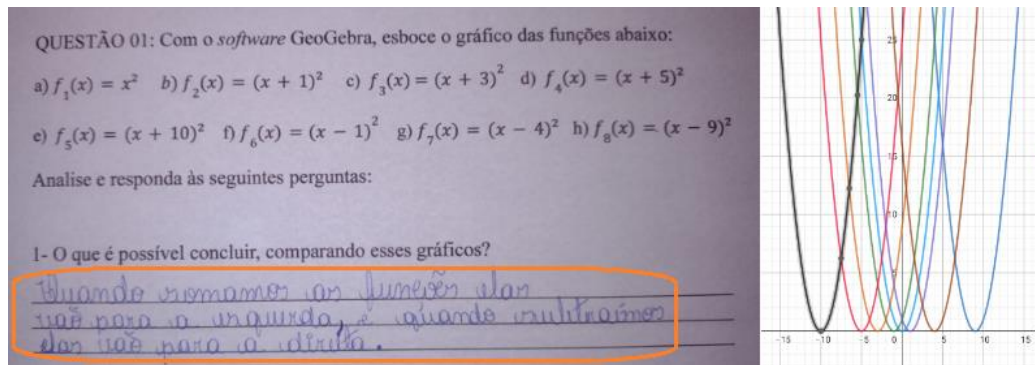 QUESTÃO 01: Com o software GeoGebra, esboce o gráfico das funções abaixo:
a) f₁(x) = x² b) f₂(x) = (x + 1)² c) f₃(x) = (x + 3)² d) f₄(x) = (x + 5)²
e) f₅(x) = (x + 10)² f) f₆(x) = (x − 1)² g) f₇(x) = (x − 4)² h) f₈(x) = (x − 9)²
Analise e responda às seguintes perguntas:
1- O que é possível concluir, comparando esses gráficos?
Quando somamos as funções elas
vão para a esquerda, e quando subtraímos
elas vão para a direita.
25
20
15
10
5
-15 -10 -5 0 5 10 15